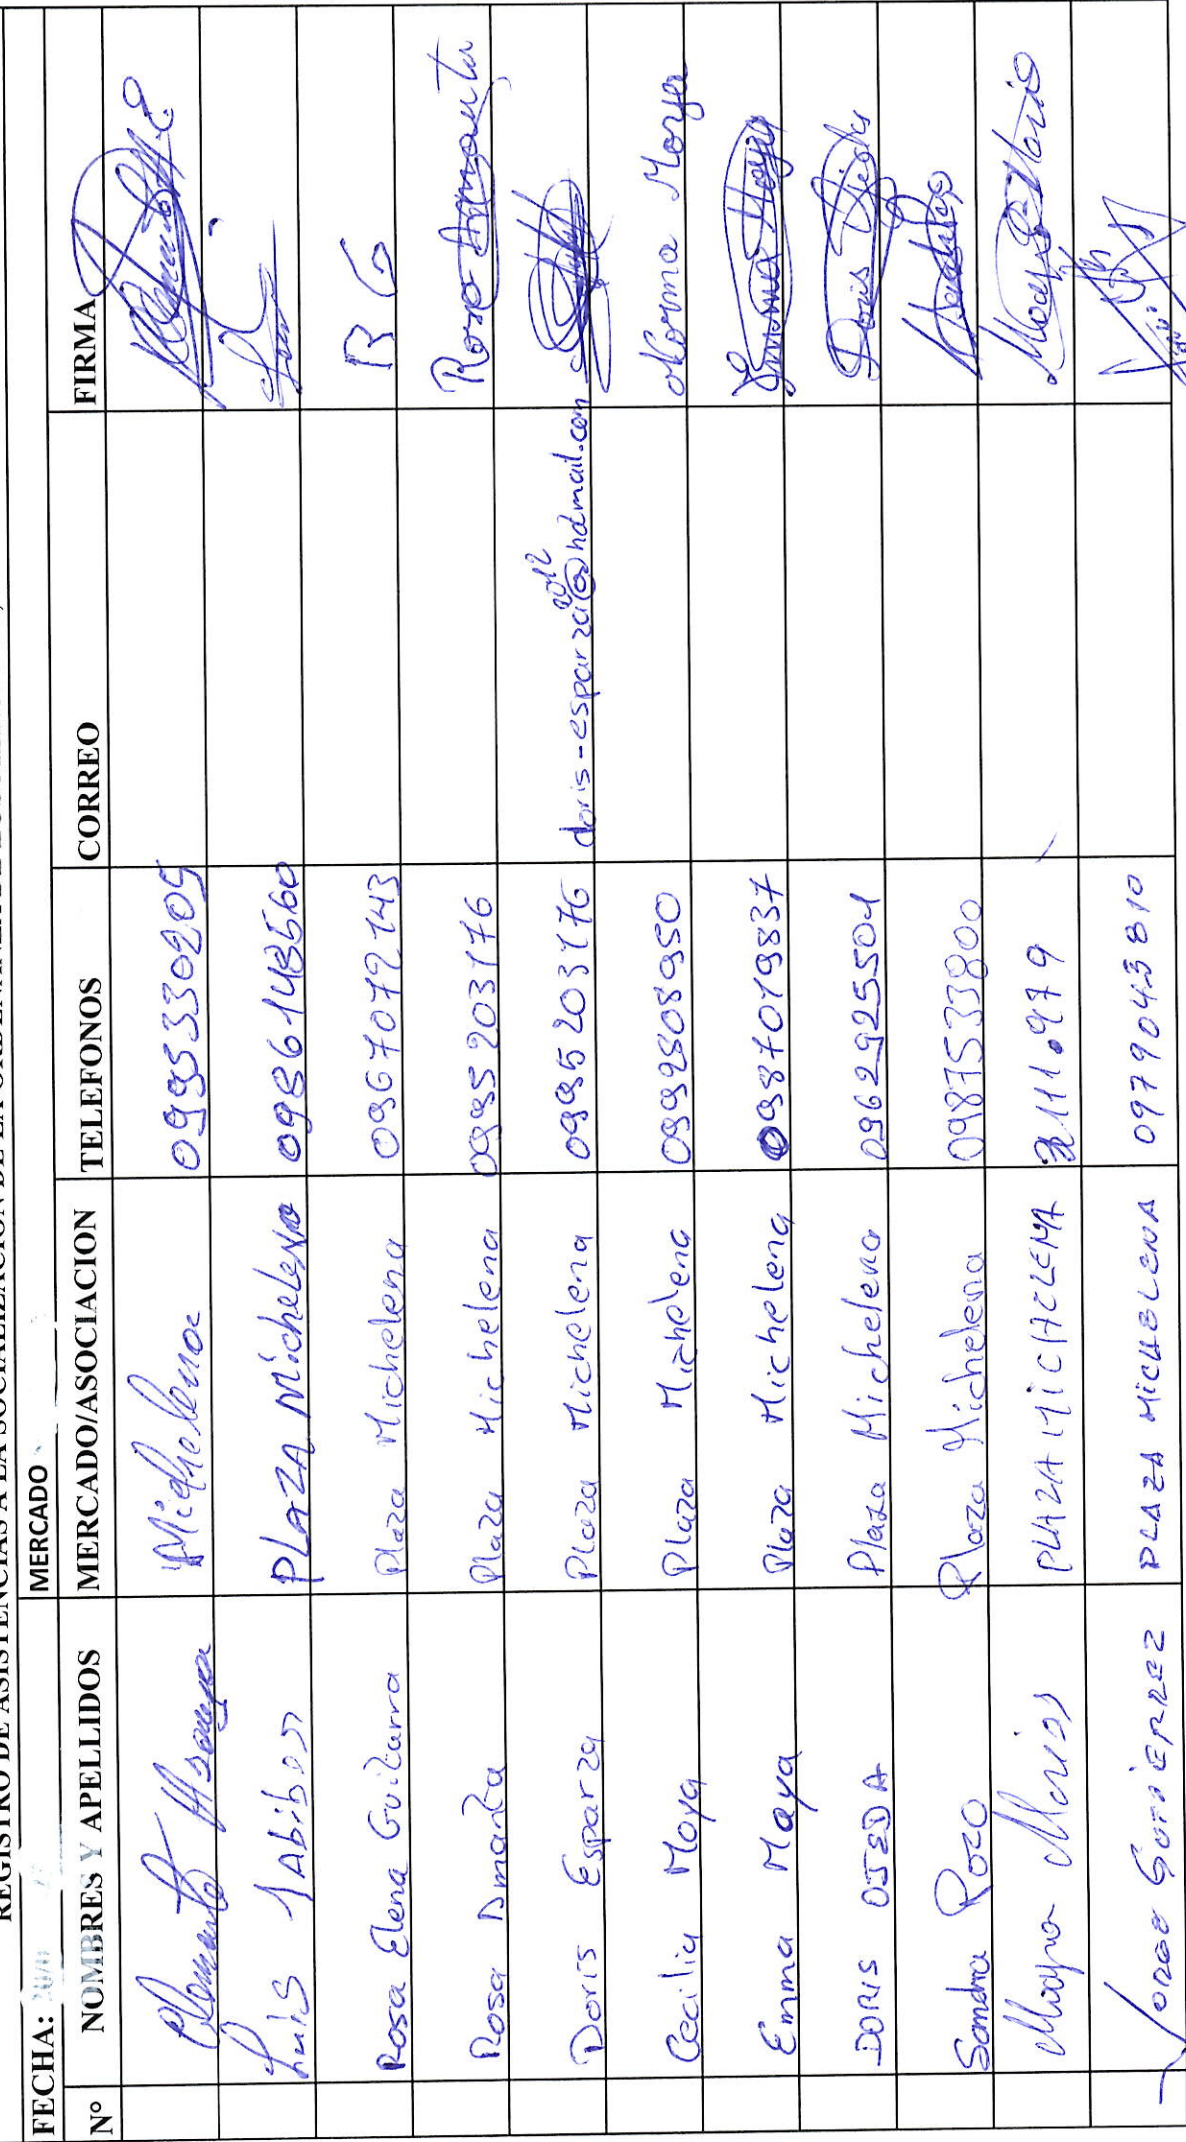 REGISTRO DE ASISTENCIAS A LA SOCIALIZACION DE LA
FECHA: MERCADO
Nº NOMBRES Y APELLIDOS MERCADO/ASOCIACION TELEFONOS CORREO FIRMA
Michelena 0995330209
Luis PLAZA Michelena 0986148560
Rosa Elena Guitarra Plaza Michelena 0967072143 R G
Rosa Amanta Plaza Michelena 0995203176 Rosa Amanta
Doris Esparza Plaza Michelena 0995203176 doris-esparza2012@hotmail.com
Cecilia Moya Plaza Michelena 0999808950 Norma Moya
Emma Maya Plaza Michelena 0987019837 Emma Maya
DORIS OJEDA Plaza Michelena 0962925501 Doris Ojeda
Sandra Pozo Plaza Michelena 0987533800
PLAZA MICHELENA
JORGE GUTIERREZ PLAZA MICHELENA 0979043810